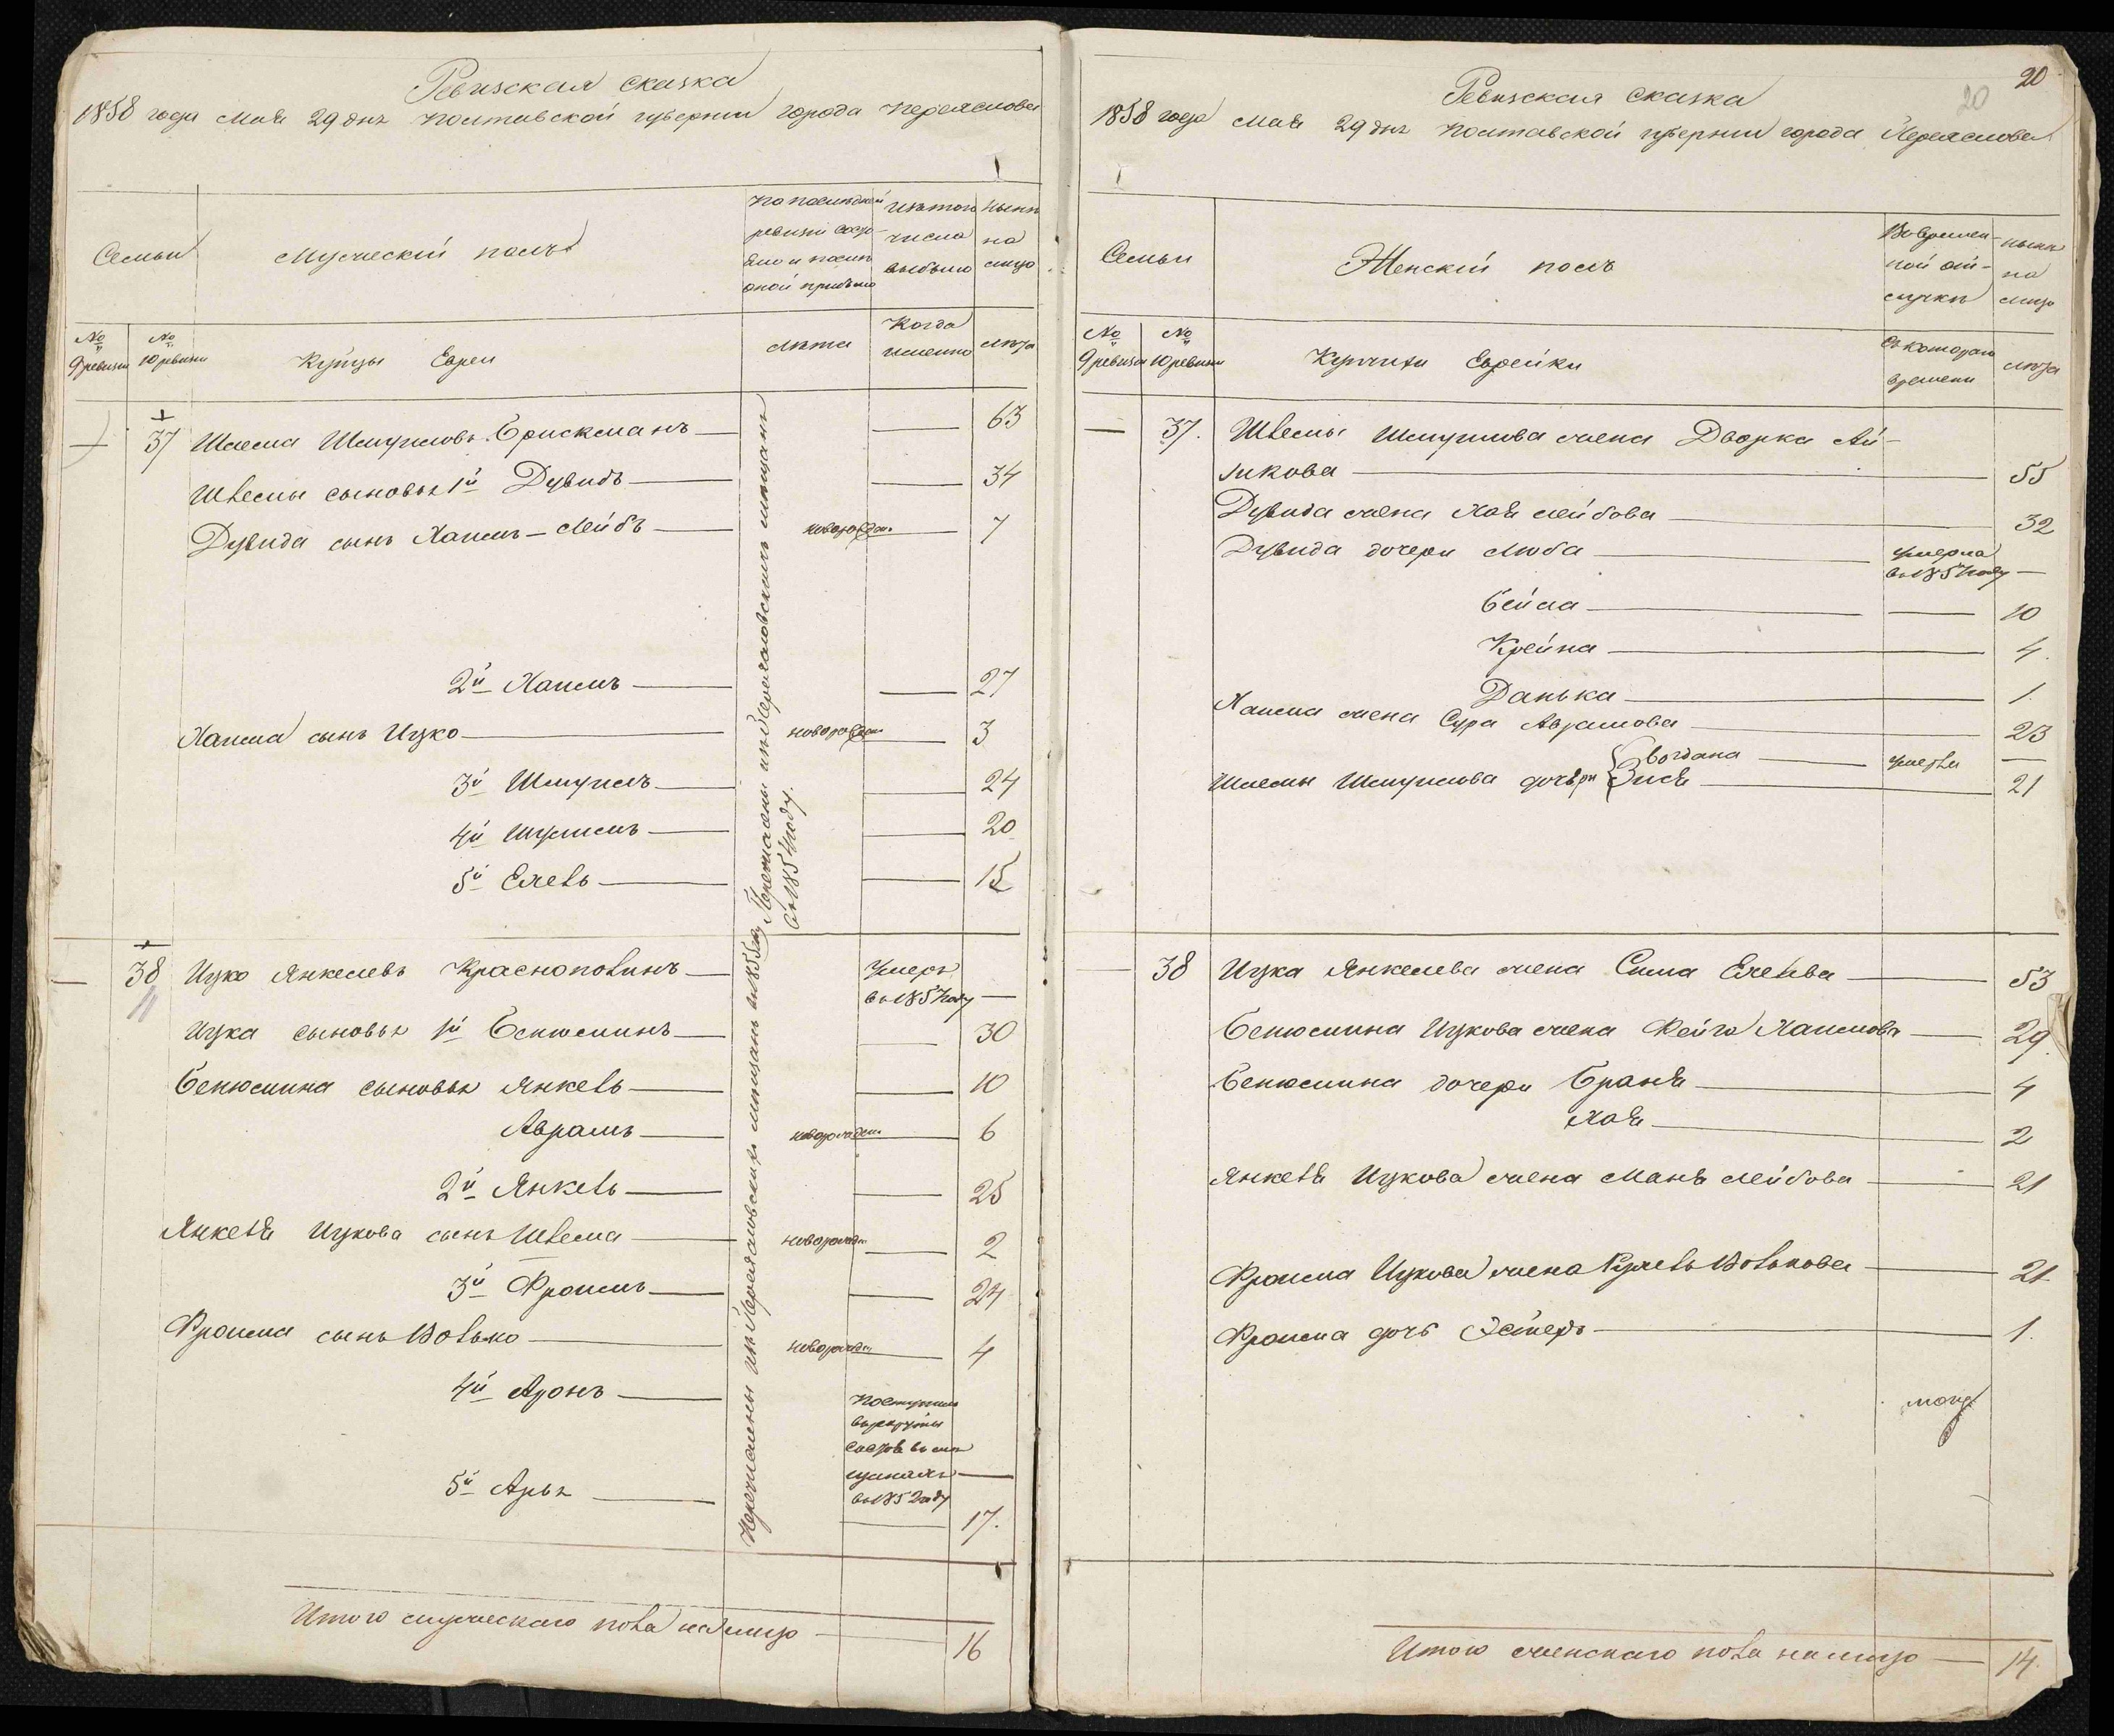 Ревизская сказка
1858 года Мая 29 дня Полтавской губернии города Переяслова
Семьи
Мужеский полъ
По последней
ревизіи состо-
яло и после
оной прибыло
Изъ того
числа
выбыло
Ныне
на
лицо
№
9 ревизіи
№
10 ревизіи
Купцы Евреи
Лета
Когда
именно
Лета
— 37 Шлема Шмуиловъ Брискманъ — — 63
Шлемы сыновья 1й Дувидъ — — 34
Дувида сынъ Хаимъ-Лейбъ — новорожден — 7
2й Хаимъ — — 27
Хаима сынъ Ицко — новорожден — 3
3й Шмуилъ — — 24
4й Шулимъ — — 20
5й Елевъ — — 15
Перечислены изъ Переяловскихъ мещанъ
въ 1854 году.
— 38 Ицко Янкелевъ Краснополинъ — Умеръ
въ 1857 году —
Ицка сыновья 1й Бенюминъ — — 30
Бенюмина сыновья Янкель — — 10
Аврамъ — новорожден — 6
2й Янкель — — 25
Янкеля Ицкова сынъ Шлема — новорожден — 2
3й Фроимъ — — 24
Фроима сынъ Волько — новорожден — 4
4й Аронъ — Поступилъ
в рекруты
въ 1852 году
5й Арья — — 17.
Перечислены изъ Переяловскихъ мещанъ
Итого мужескаго пола на лицо — 16
20
20
Ревизская сказка
1858 года Мая 29 дня Полтавской губерніи города Переяслова
Семьи
Женскій полъ
Во времен-
ной от-
лучке
Ныне
на
лицо
№
9 ревизіи
№
10 ревизіи
Купчихи Еврейки
Съ котораго
времени
Лета
— 37. Шлемы Шмуилова жена Дворка Ай-
зикова — 55
Дувида жена Хая Лейбова — 32
Дувида дочери Люба — умерла
въ 1857 году —
Бейла — — 10
Крейна — 4.
Данька — 1.
Хаима жена Сура Аврамова — 23
Шлемы Шмуилова дочери Богдана — умерла —
Зися — 21
— 38 Ицка Янкелева жена Сима Елевва — 53
Бенюмина Ицкова жена Фейга Хаимова — 29.
Бенюмина дочери Браня — 4
Хая — 2
Янкеля Ицкова жена Маня Лейбова — 21
Фроима Ицкова жена Рухль Волькова — 21
Фроима дочь Эстеръ — 1.
Итого женскаго пола на лицо — 14.